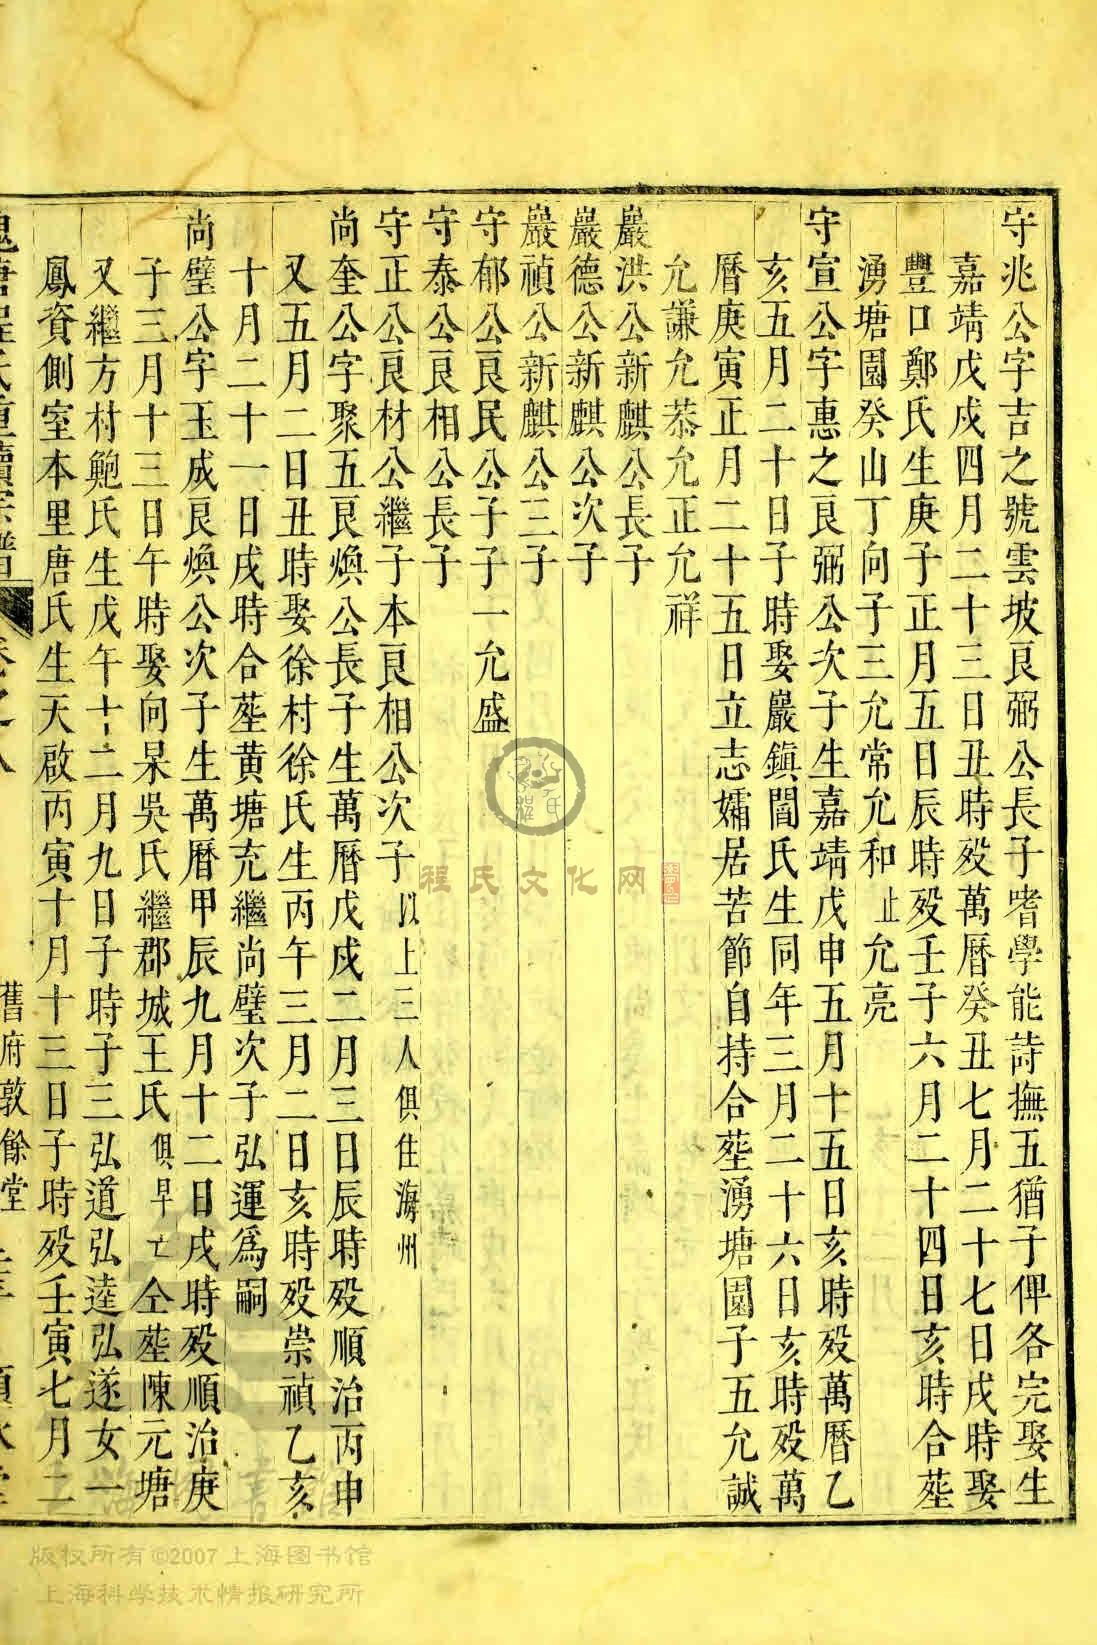 守兆公字吉之號雲坡良弼公長子嗜學能詩撫五猶子俾各完娶生
嘉靖戊戌四月二十三日丑時殁萬曆癸丑七月二十七日戌時娶
豐口鄭氏生庚子正月五日辰時殁壬子六月二十四日亥時合塟
湧塘園癸山丁向子三允常允和止允亮
守宣公字惠之良弼公次子生嘉靖戊申五月十五日亥時殁萬曆乙
亥五月二十日子時娶巖鎮閻氏生同年三月二十六日亥時殁萬
曆庚寅正月二十五日立志孀居苦節自持合塟湧塘園子五允誠
允謙允恭允正允祥
巖洪公新麒公長子
巖德公新麒公次子
巖禎公新麒公三子
守郁公良民公子子一允盛
守泰公良相公長子
守正公良材公繼子本良相公次子以上三人俱住海州
尚奎公字聚五良煥公長子生萬曆戊戌二月三日辰時殁順治丙申
又五月二日丑時娶徐村徐氏生丙午三月二日亥時殁崇禎乙亥
十月二十一日戌時合塟黃塘充繼尚璧次子弘運為嗣
尚璧公字玉成良煥公次子生萬曆甲辰九月十二日戌時殁順治庚
子三月十三日午時娶向杲吳氏繼郡城王氏俱早亡仝塟陳元塘
又繼方村鮑氏生戊午十二月九日子時子三弘道弘達弘遂女一
鳳資側室本里唐氏生天啟丙寅十月十三日子時殁壬寅七月二
槐塘程氏重續宗譜 卷之八 舊府敦餘堂
程氏文化网
版权所有©2007上海图书馆
上海科学技术情报研究所